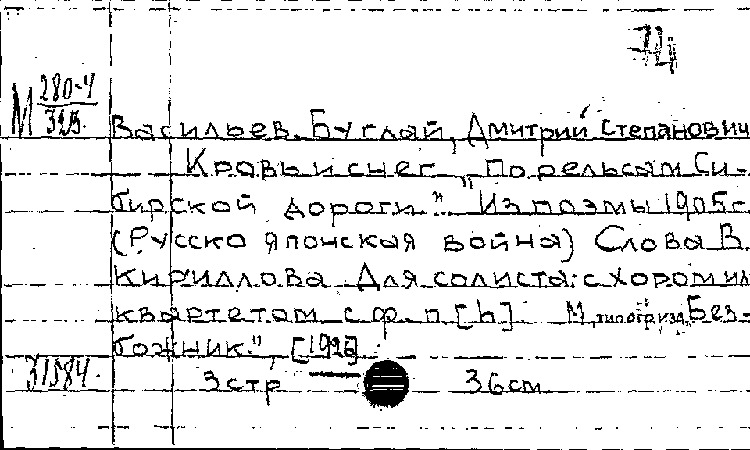 М 280-4
325
Васильев-Буглай, Дмитрий Степанович
Кровь и снег „По рельсам Си-
бирской дороги". "Из поэмы 1905 г.
(Русско японская война) Слова В.
Кириллова Для солиста с хором ил
квартетом с ф. п. [h] М, типогр изд. Без-
божник.", [1926]
31584.
3 стр 36 см